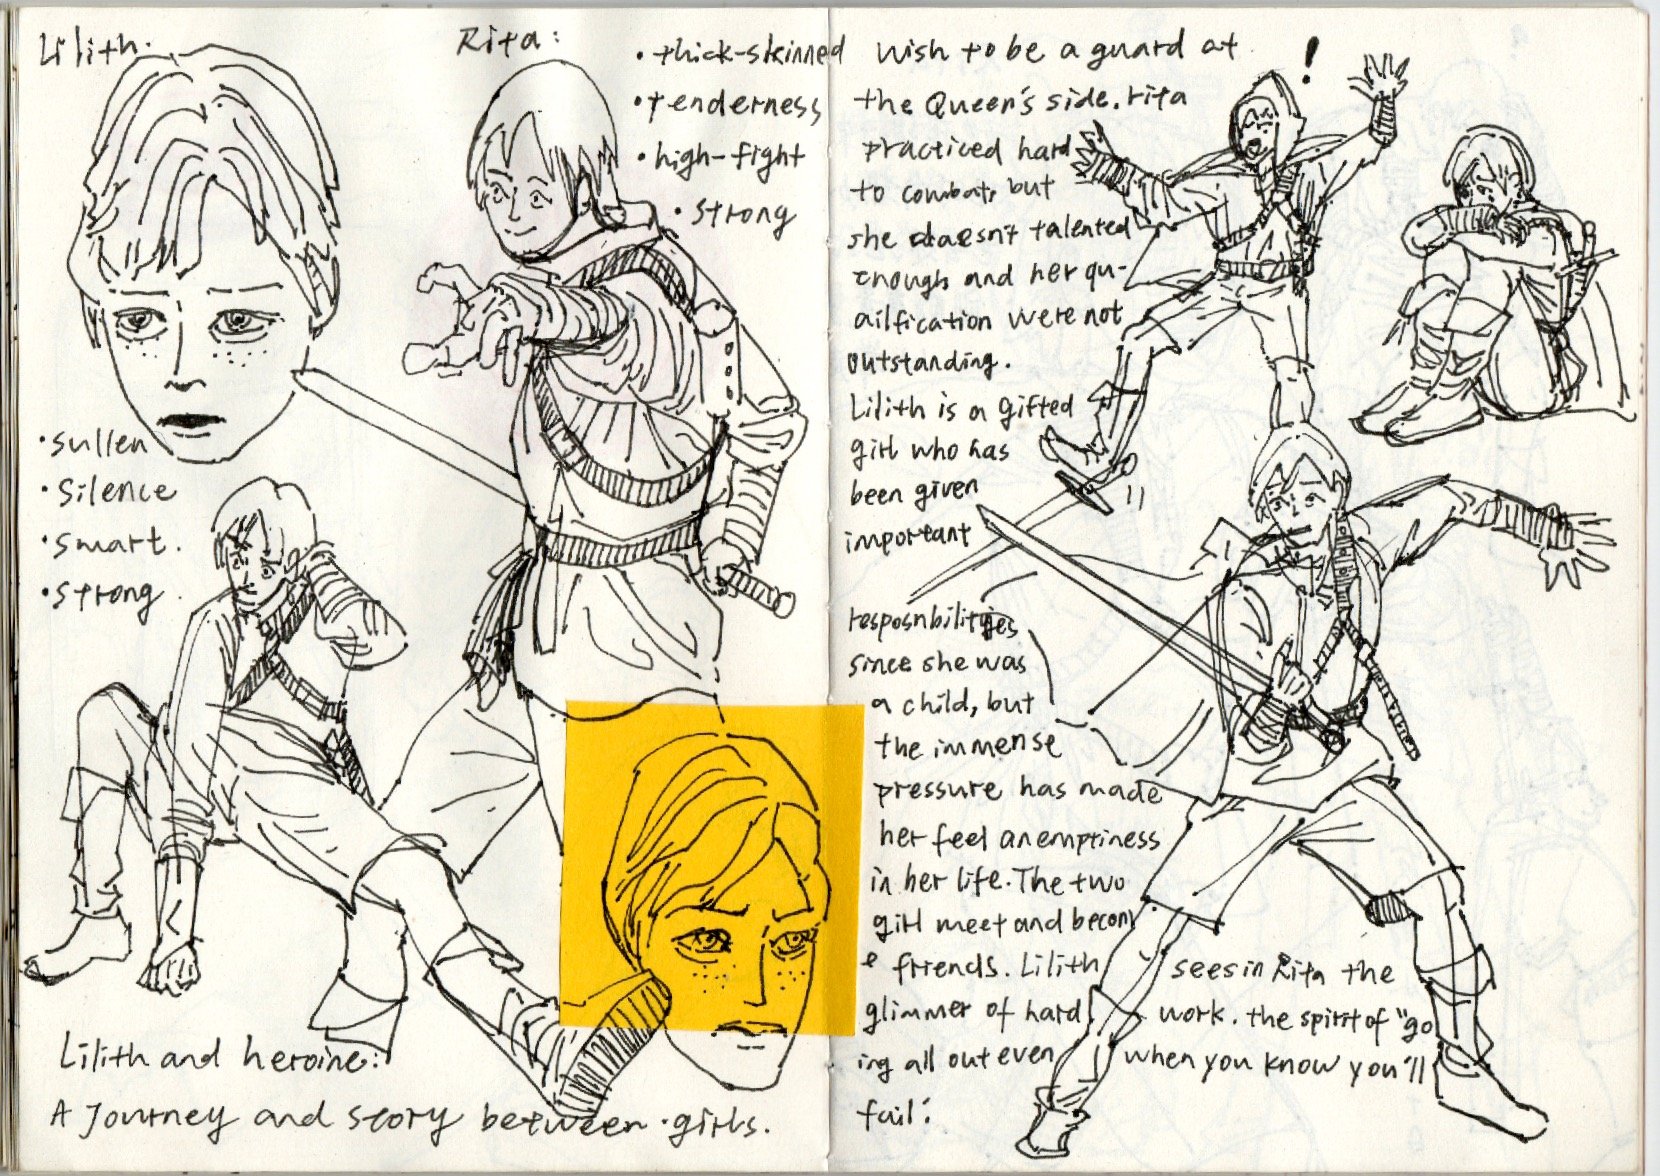 Lilith.
• sullen
• Silence
• smart.
• strong.
Rita:
• thick-skinned
• tenderness
• high-fight
• strong
Lilith and heroine:
A Journey and story between girls.
Wish to be a guard at
the Queen's side. rita
practiced hard
to combat, but
she doesn't talented
enough and her qu-
ailfication were not
outstanding.
Lilith is a gifted
girl who has
been given
important
resposnbilities
since she was
a child, but
the immense
pressure has made
her feel an emptiness
in her life. The two
girl meet and becom
e friends. Lilith sees in Rita the
glimmer of hard work. the spirit of "go
ing all out even when you know you'll
fail'.
!